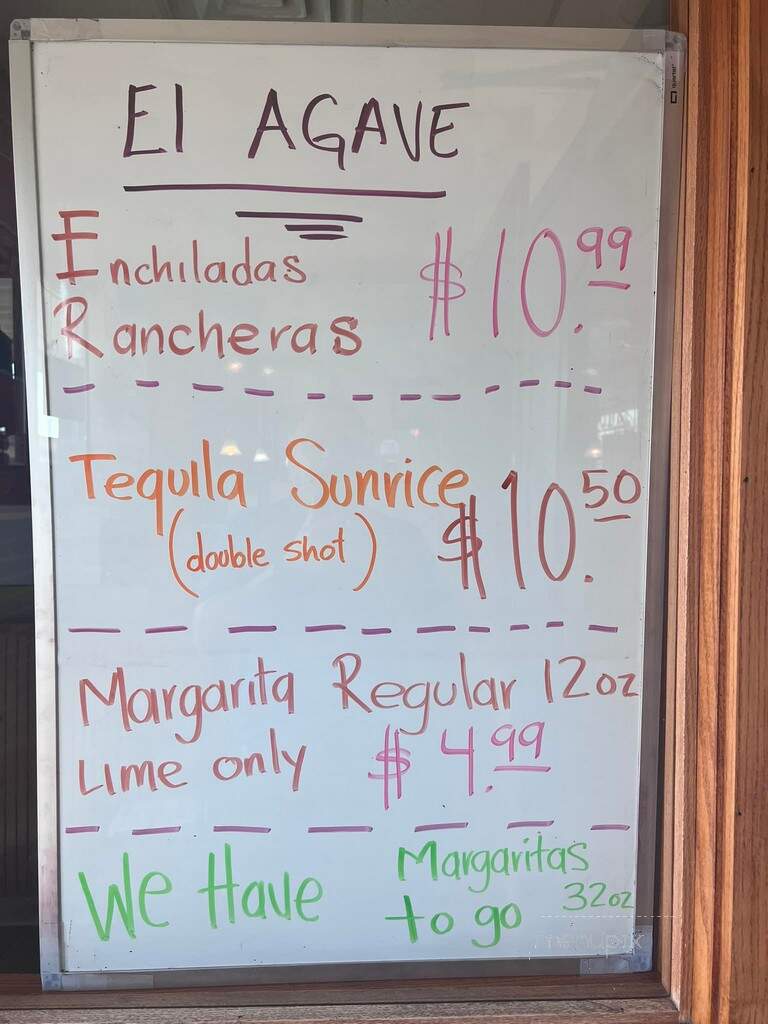 El AGAVE
Enchiladas
Rancheras $10.99
Tequila Sunrice
(double shot) $10.50
Margarita Regular 12oz
Lime only $4.99
We Have Margaritas
to go 32oz
menupix